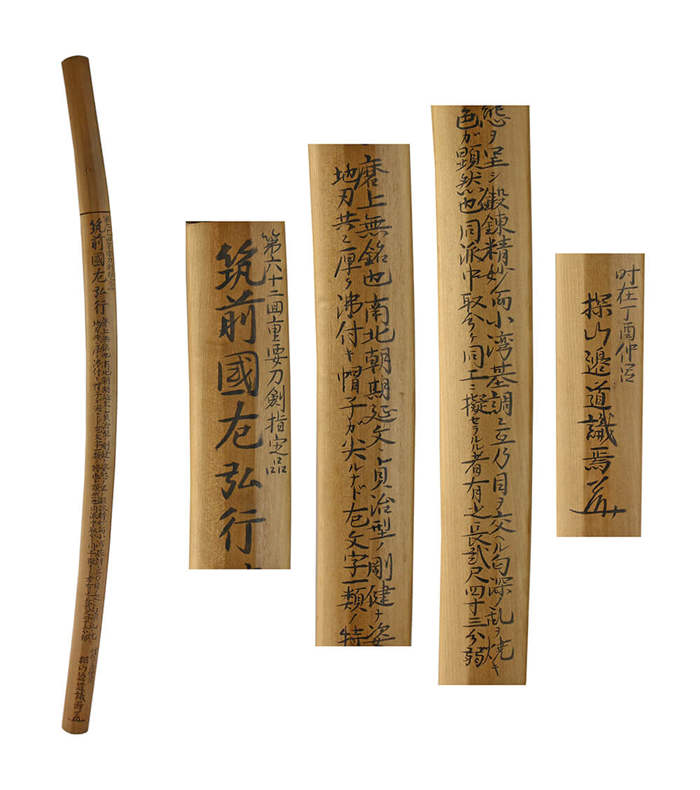 第六十二回重要刀剣指定品
筑前國左弘行
磨上無銘也南北朝期延文、貞治型ノ剛健ナ姿
地刃共ニ厚ク沸付キ帽子ガ尖ルナド左文字一類ノ特
態ヲ呈シ鍛錬精妙而小湾基調ニ互乃目ヲ交ヘル匂深ノ乱ヲ焼キ
色ガ顕然也同派中取分ケ同工ニ擬セラルル者有之長貳尺四寸三分弱
时在丁酉仲呂
探山邉道識焉